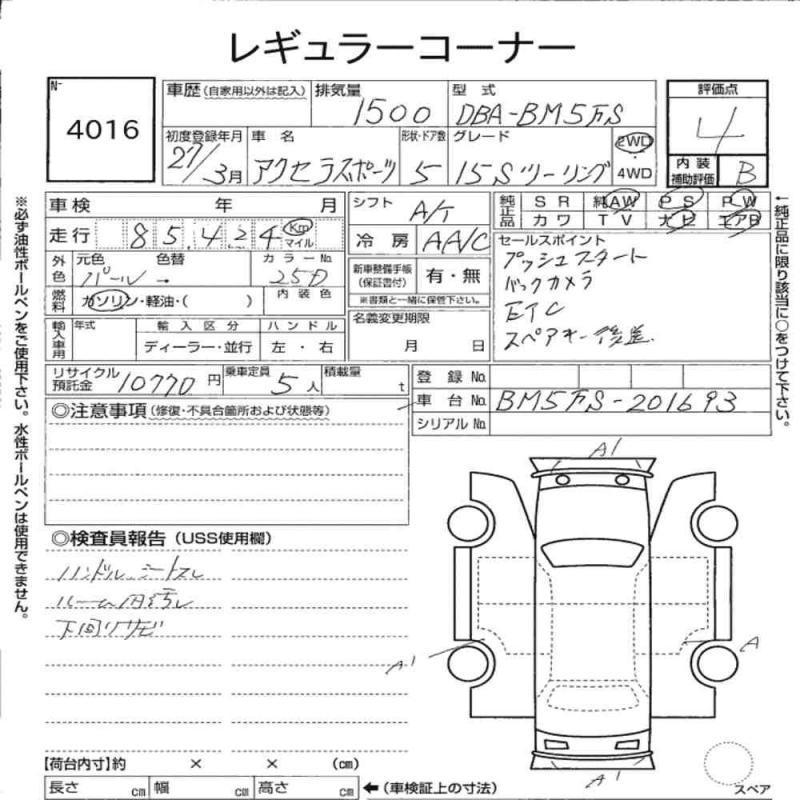 レギュラーコーナー
№ 4016
車歴(自家用以外は記入) 排気量 1500 型式 DBA-BM5FS 評価点 4
初度登録年月 27/3月 車名 アクセラスポーツ 形状・ドア数 5 グレード 15Sツーリング 2WD・4WD 内装補助評価 B
車検 年 月 シフト A/T 純正品 SR 純AW PS PW
カワ TV ナビ エアB
走行 85,424 Km マイル 冷房 AAC
外色 元色 パール 色替 → カラーNo. 25D
燃料 ガソリン・軽油・( ) 内装色
新車整備手帳(保証書付) 有・無
※書類と一緒に保管下さい。
セールスポイント
プッシュスタート
バックカメラ
ETC
スペアキー後送
輸入車用 年式 輸入区分 ハンドル
ディーラー・並行 左・右
名義変更期限
月 日
リサイクル預託金 10770円 乗車定員 5人 積載量 t
登録 No.
車台 No. BM5FS-201693
シリアル No.
◎注意事項(修復・不具合箇所および状態等)
◎検査員報告(USS使用欄)
ハンドル、シートスレ
ルーム内汚レ
下回りサビ
A1
A1
A
A1
スペア
【荷台内寸】約 × × (㎝)
長さ ㎝ 幅 ㎝ 高さ ㎝ ←(車検証上の寸法)
※必ず油性ボールペンをご使用下さい。水性ボールペンは使用できません。
←純正品に限り該当に○をつけて下さい。